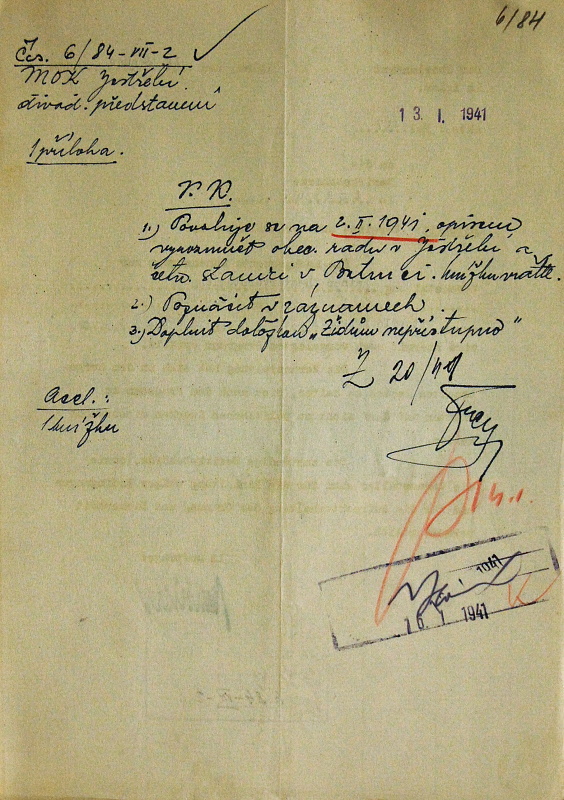 6/84
Čís. 6/84-VII-2
MOK Jestřebí
divad. představení
13. I. 1941
1 příloha.
V. K.
1.) Povoluje se na 2.II.1941, opisem
vyrozumět obec. radu v Jestřebí a
četn. stanici v . knížku vrátit.
2.) Poznačit v záznamech.
3.) Doplnit doložkou „Židům nepřístupno"
Z 20/1 41
Accl.:
1 knížku
1941
16. I. 1941